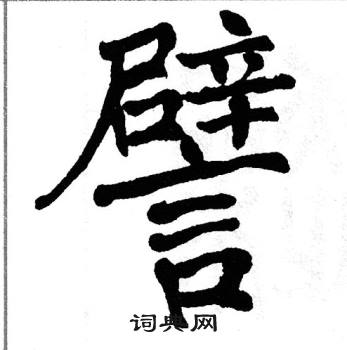 譬
词典网